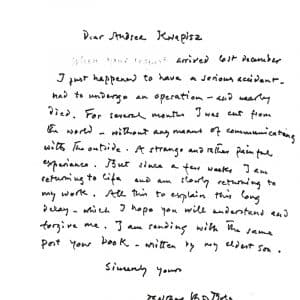 Dear Andree Kwapisz
When your            arrived last december
I just happened to have a serious accident -
had to undergo an operation - and nearly
died. For several months I was cut from
the world - without any means of communicating
with the outside. A strange and rather painful
experience. But since a few weeks I am
returning to life and am slowly returning to
my work. All this to explain this long
delay - which I hope you will understand and
forgive me. I am sending with the same
post your book - written by my eldest son.
Sincerely yours